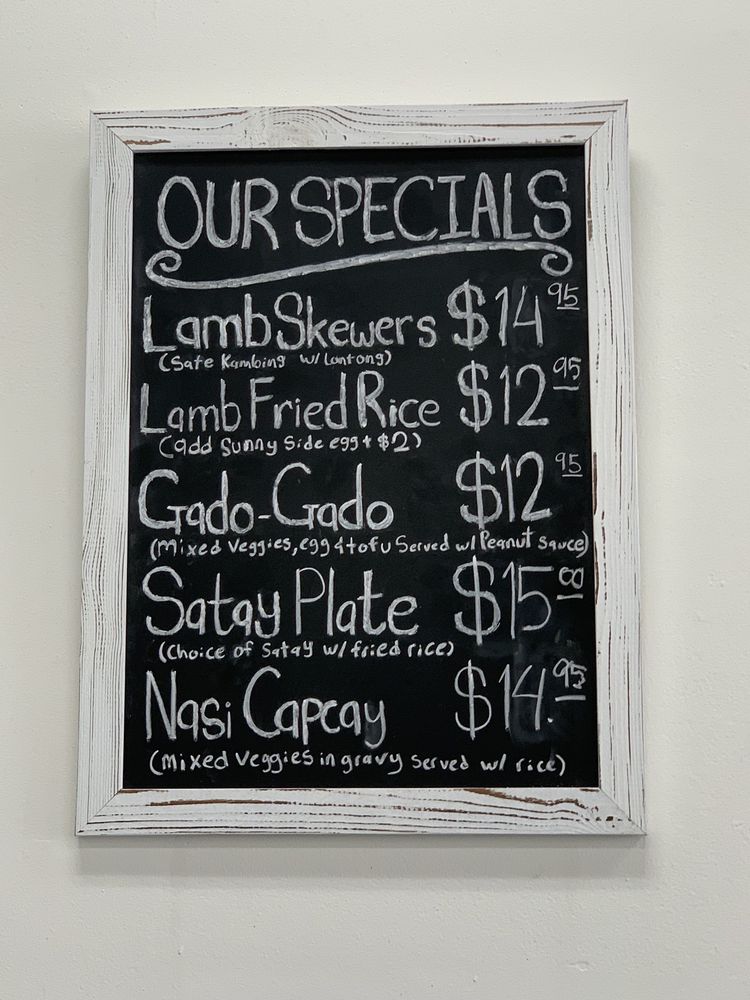 OUR SPECIALS
Lamb Skewers $14 95
(Sate Kambing w/ Lontong)
Lamb Fried Rice $12 95
(add Sunny Side egg + $2)
Gado-Gado $12 95
(Mixed Veggies, egg & tofu Served w/ Peanut Sauce)
Satay Plate $15 00
(Choice of Satay w/ fried rice)
Nasi Capcay $14. 95
(Mixed Veggies in gravy served w/ rice)